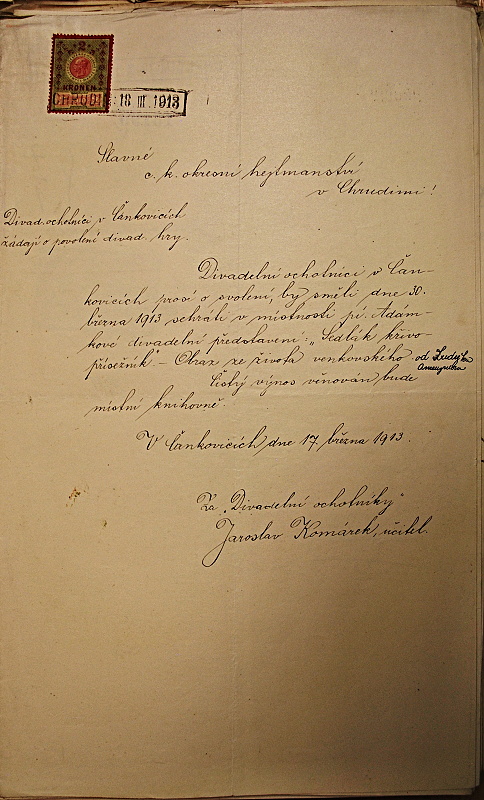 2
KRONEN
CHRUDI 18 III. 1913
Slavné
c. k. okresní hejtmanství
v Chrudimi!
Divad. ochotníci v Čankovicích
žádají o povolení divad. hry.
Divadelní ochotníci v Čan-
kovicích prosí o svolení, by směli dne 30.
března 1913 sehráti v místnosti pí. Adám-
kové divadelní představení: „Sedlák křivo-
přísežník“ – Obraz ze života venkovského od
Anzengrubra
Čistý výnos věnován bude
místní knihovně.
V Čankovicích dne 17. března 1913.
Za „Divadelní ochotníky“
Jaroslav Komárek, učitel.